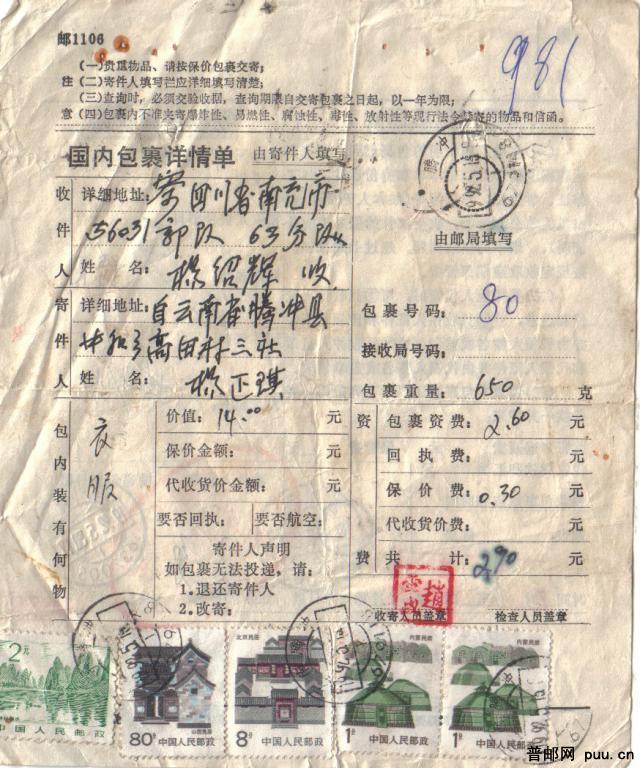 邮1106
981
(一)贵重物品、请按保价包裹交寄;
注 (二)寄件人填写栏应详细填写清楚;
(三)查询时,必须交验收据,查询期限自交寄包裹之日起,以一年为限;
意 (四)包裹内不准夹寄爆炸性、易燃性、腐蚀性、毒性、放射性等现行法令禁寄的物品和信函。
国内包裹详情单 由寄件人填写
收件人
详细地址: 寄四川省南充市
56031部队 63分队
姓 名: 杨绍辉 收
由邮局填写
寄件人
详细地址: 自云南省腾冲县
高田村三社
姓 名: 杨正琪
包裹号码: 80
接收局号码:
包裹重量: 650 克
包内装有何物
衣服
价值: 14.00 元
保价金额: 元
代收货价金额: 元
要否回执: 要否航空:
寄件人声明
如包裹无法投递,请:
1.退还寄件人
2.改寄:
资费
包裹资费: 2.60 元
回执费: 元
保价费: 0.30 元
代收货价费: 元
共计: 2.90 元
收寄人员盖章 检查人员盖章
2元
中国人民邮政
山西民居
80分 中国人民邮政
北京民居
8分 中国人民邮政
内蒙民居
1分 中国人民邮政
内蒙民居
1分 中国人民邮政
普邮网 puu.cn